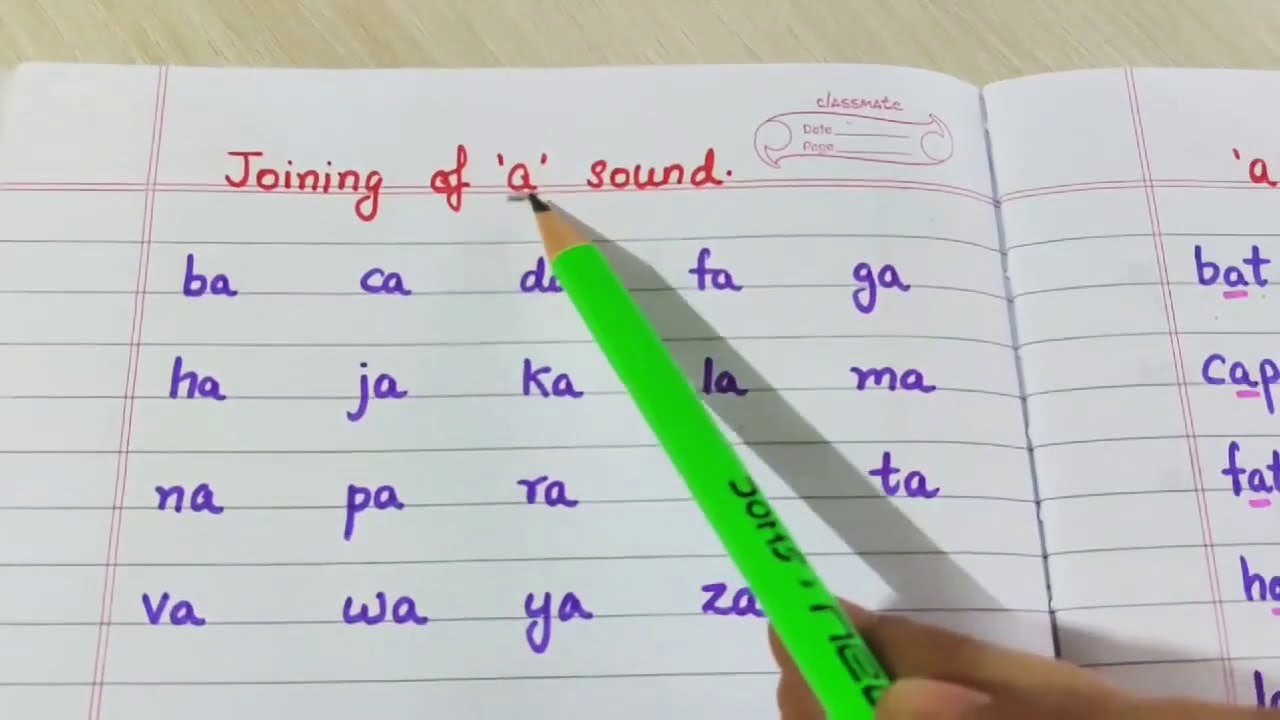 classmate
Date
Page
Joining of 'a' sound.
ba ca da fa ga
ha ja ka la ma
na pa ra ta
va wa ya za
'a
bat
cap
fat